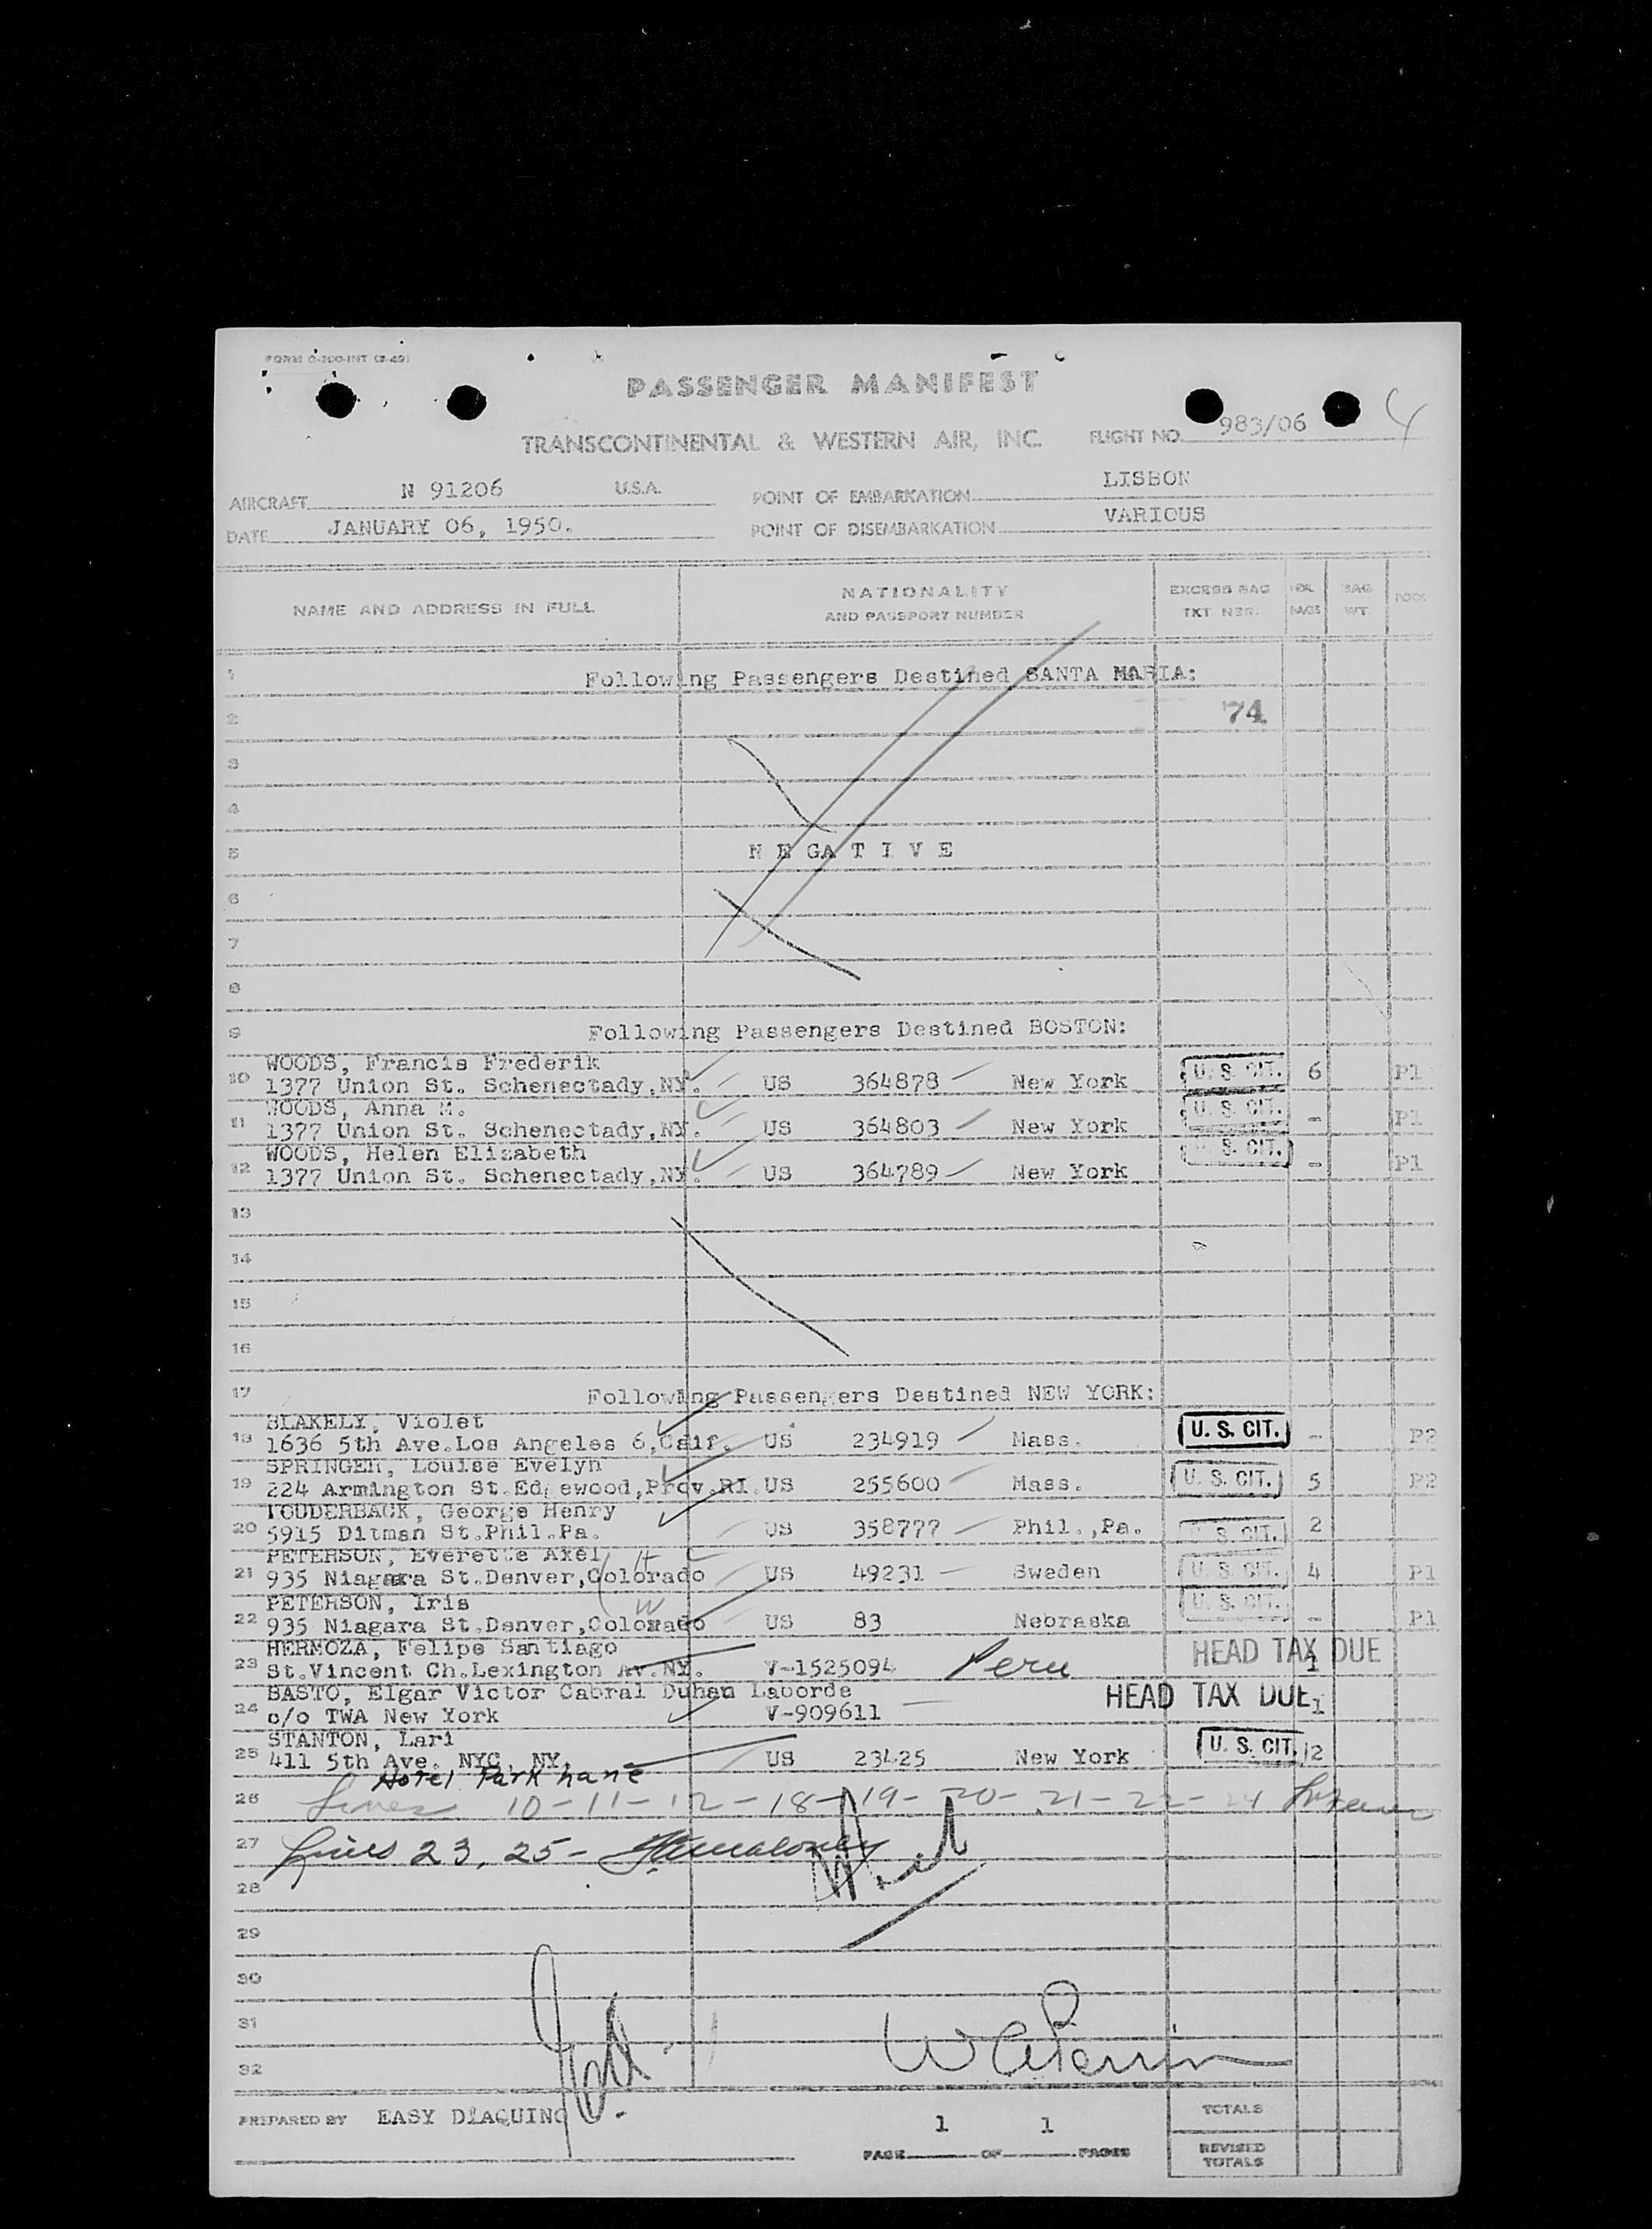 FORM O-200-INT (7-49)
PASSENGER MANIFEST
4
TRANSCONTINENTAL & WESTERN AIR, INC. FLIGHT NO. 983/06
AIRCRAFT N 91206 U.S.A. POINT OF EMBARKATION LISBON
DATE JANUARY 06, 1950. POINT OF DISEMBARKATION VARIOUS
NAME AND ADDRESS IN FULL NATIONALITY AND PASSPORT NUMBER EXCESS BAG TKT NBR. BAGS BAG WT
1 Following Passengers Destined SANTA MARIA:
2 74
3
4
5 N E GA T I V E
6
7
8
9 Following Passengers Destined BOSTON:
WOODS, Francis Frederik
10 1377 Union St. Schenectady,NY. US 364878 New York U. S. CIT. 6 P1
WOODS, Anna M.
11 1377 Union St. Schenectady,NY. US 364803 New York U. S. CIT. - P1
WOODS, Helen Elizabeth
12 1377 Union St. Schenectady,NY. US 364789 New York U. S. CIT. - P1
13
14
15
16
17 Following Passengers Destined NEW YORK:
BLAKELY, Violet
18 1636 5th Ave.Los Angeles 6,Calif. US 234919 Mass. U. S. CIT. - P2
SPRINGER, Louise Evelyn
19 224 Armington St.Edgewood,Prov.RI. US 255600 Mass. U. S. CIT. 5 P2
LOUDERBACK, George Henry
20 5915 Ditman St.Phil.Pa. US 358777 Phil.,Pa. U. S. CIT. 2
PETERSON, Everette Axel H
21 935 Niagara St.Denver,Colorado US 49231 Sweden U. S. CIT. 4 P1
PETERSON, Iris W
22 935 Niagara St.Denver,Colorado US 83 Nebraska U. S. CIT. - P1
HERMOZA, Felipe Santiago
23 St.Vincent Ch.Lexington Av.NY. V-1525094 Peru HEAD TAX DUE 1
BASTO, Elgar Victor Cabral Duhau Laborde
24 c/o TWA New York V-909611 HEAD TAX DUE 1
STANTON, Lari
25 411 5th Ave. NYC, NY. US 23425 New York U. S. CIT. 2
Hotel Park Lane
26 Lines 10-11-12-18-19-20-21-22-24
27 Lines 23, 25-
28
29
30
31
32
PREPARED BY EASY DIAQUINO TOTALS
PAGE 1 OF 1 PAGES REVISED TOTALS